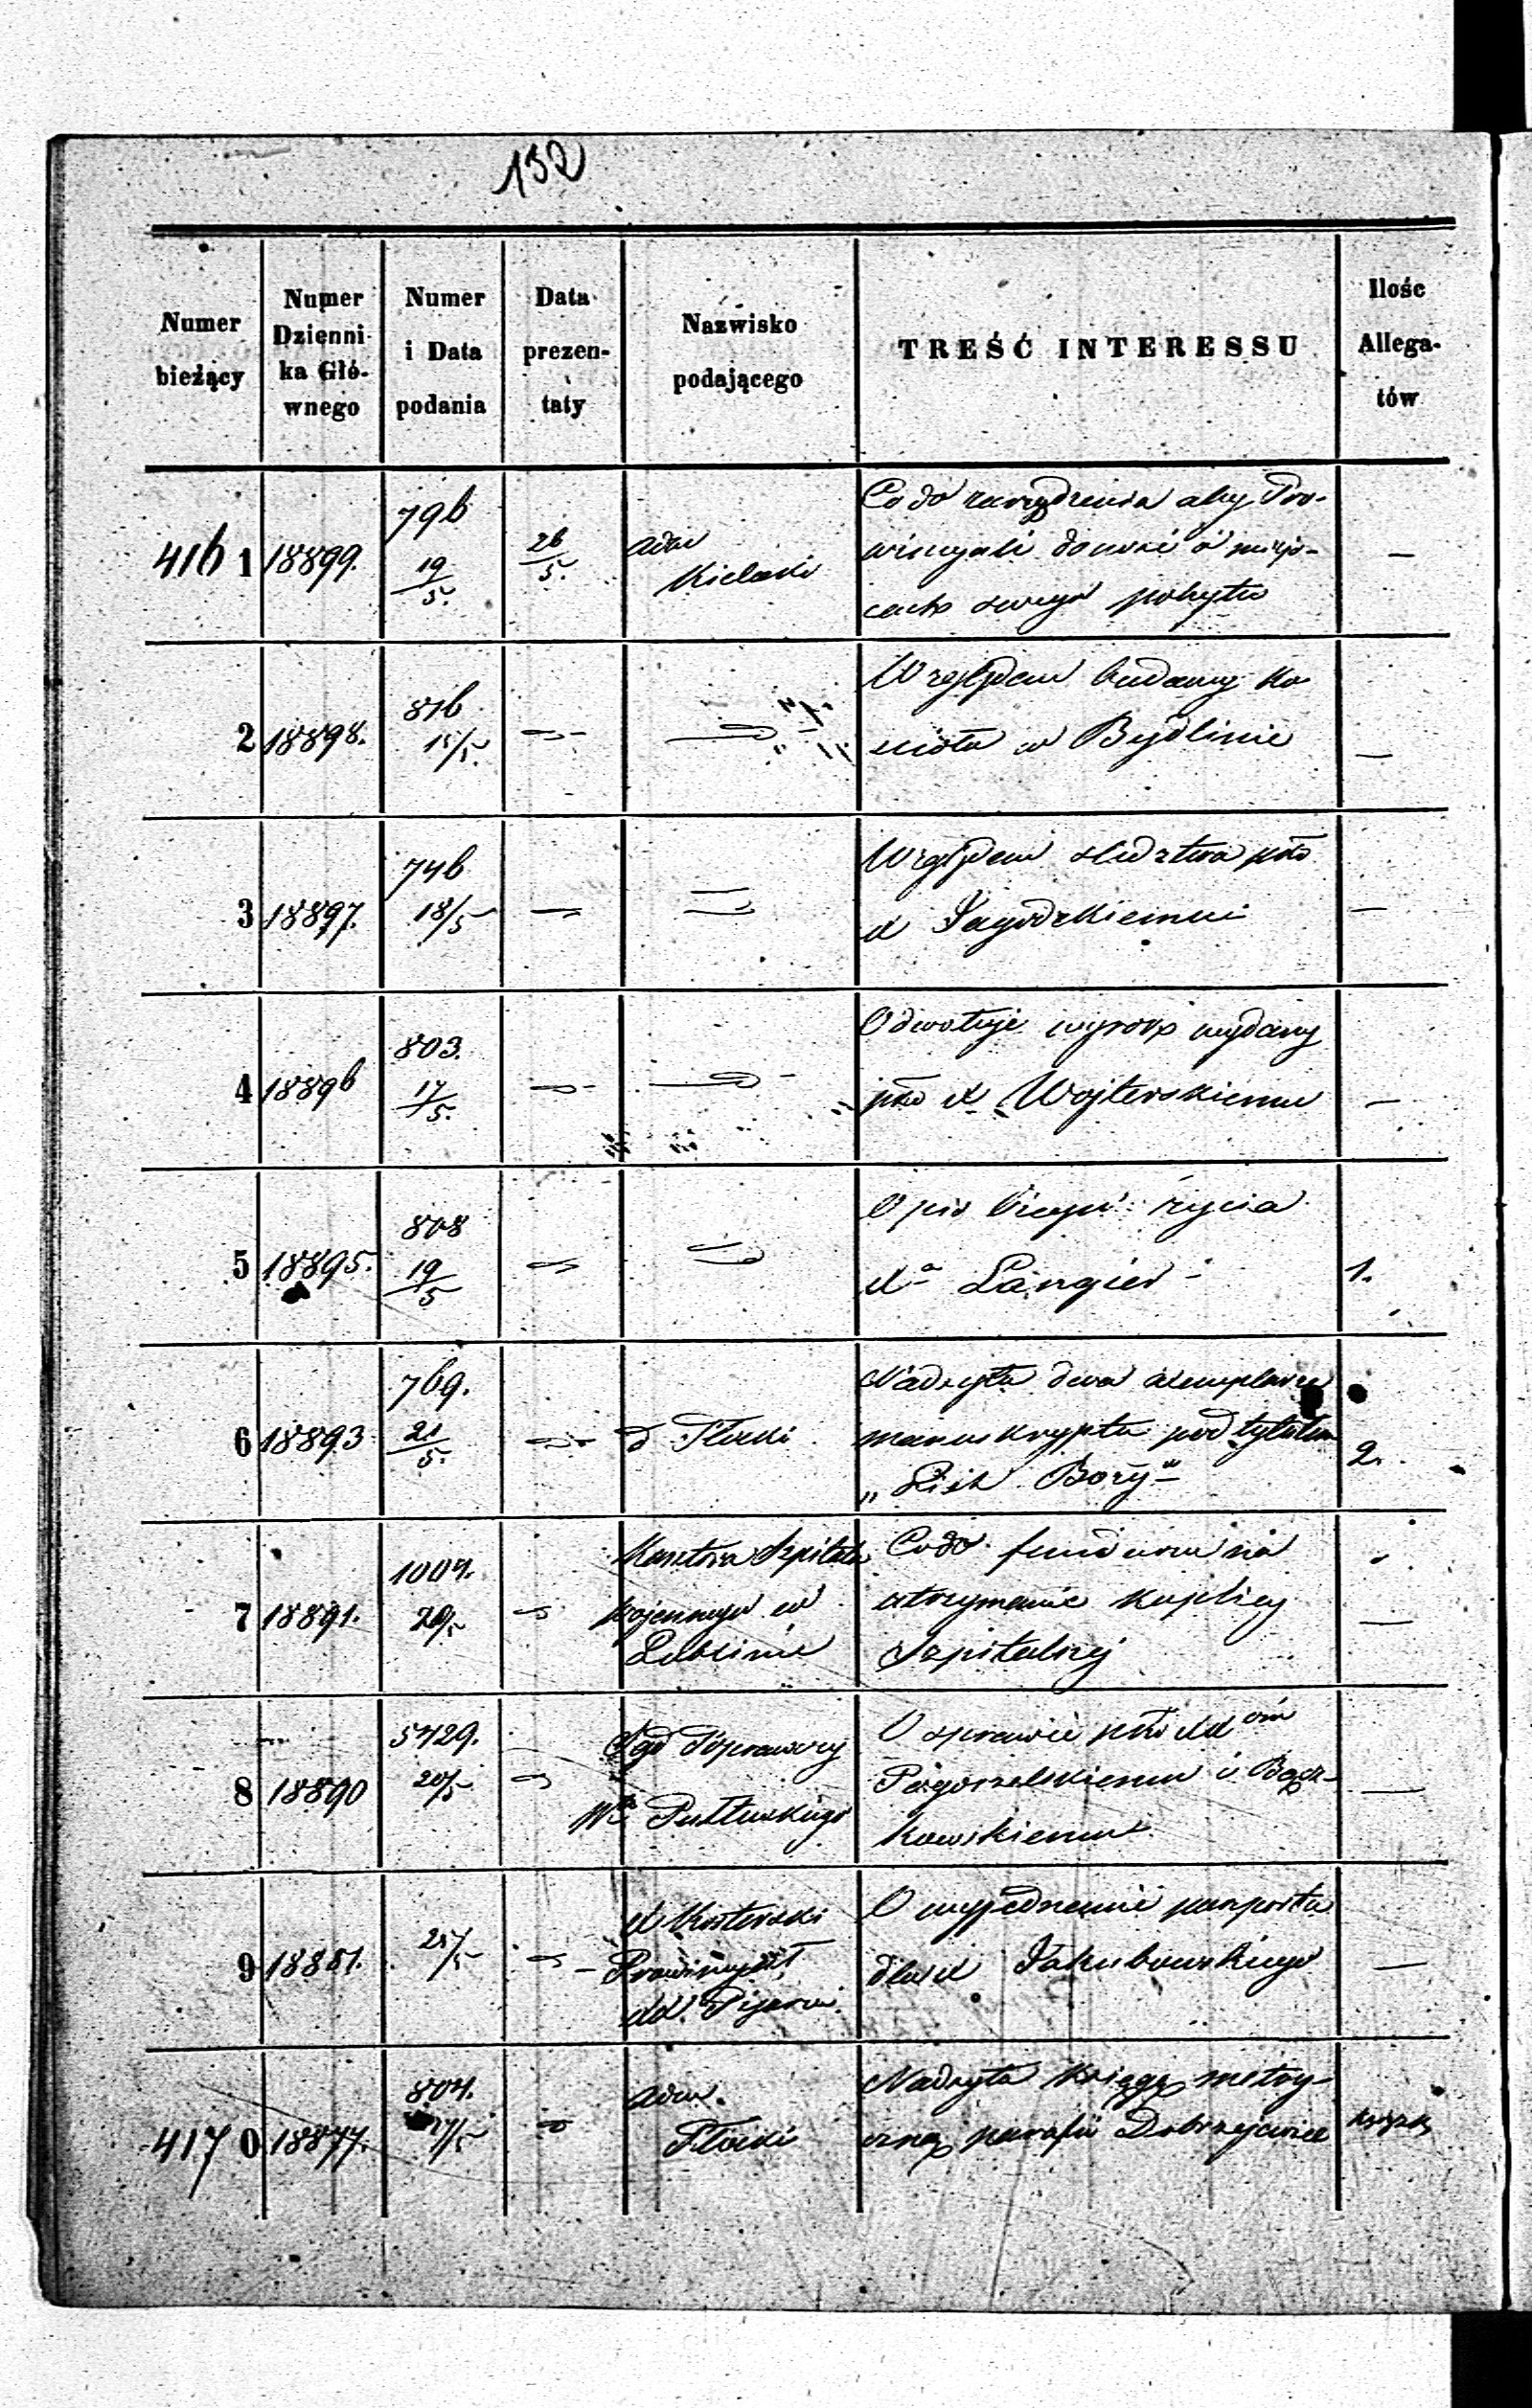 132
Numer
bieżący
Numer
Dzienni-
ka Głó-
wnego
Numer
i Data
podania
Data
prezen-
taty
Nazwisko
podającego
TREŚĆ INTERESSU
Ilośc
Allega-
tów
416 1
18899.
796
19/5.
26/5.
Adm
Kielecki
Co do zarządzenia aby Pro-
wincyali donosić o miejs-
cach swego pobytu
—
2
18898.
816
15/5.
Względem budowy Ko-
scioła w Bydlinie
—
3
18897.
746
18/5
Względem śledztwa pko
X Jagodzkiemu
—
4
18896
803.
17/5.
Odwołuje wyrok wydany
pko X Wojterskiemu
—
5
18895.
808
19/5
Opis biegu życia
Xa Langier
1.
6
18893
769.
21/5.
d Płocki
Nadsyła dwa exemplarze
manuskryptu pod tytułem
„ Bozy"
2.
7
18891.
1004.
20/5
Kantora Szpitala
wojennego w
Lublinie
Co do funduszu na
utrzymanie kaplicy
Szpitalnej
—
8
18890
5429.
20/5
Sąd Poprawczy
Wu Pułtuskiego
O sprawie pko XX om
Pogorzelskiemu i Bącz-
kowskiemu
—
9
18881.
25/5
X
Prowincyał
XX. Pijarów
O wyjednanie paszportu
dla X Jakubowskiego
—
417 0
18877.
804.
17/5
Adm.
Płocki
Nadsyła księgę metry-
czną parafii Dobrzejewice